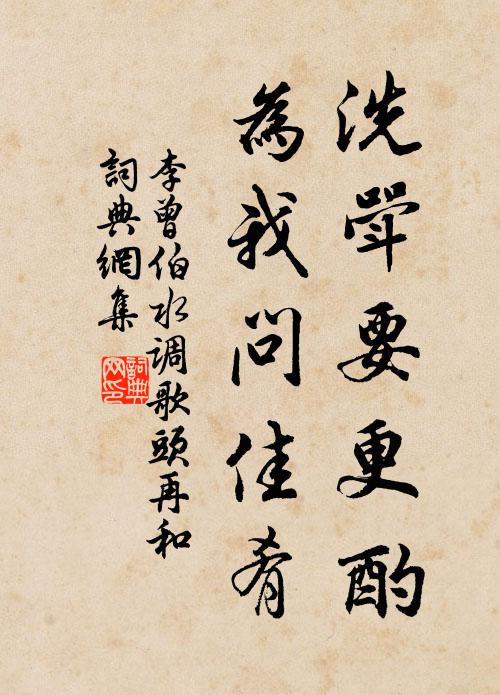 洗斝要更酌
為我問佳肴
李曾伯水调歌頭再和
詞典網集
詞典網印